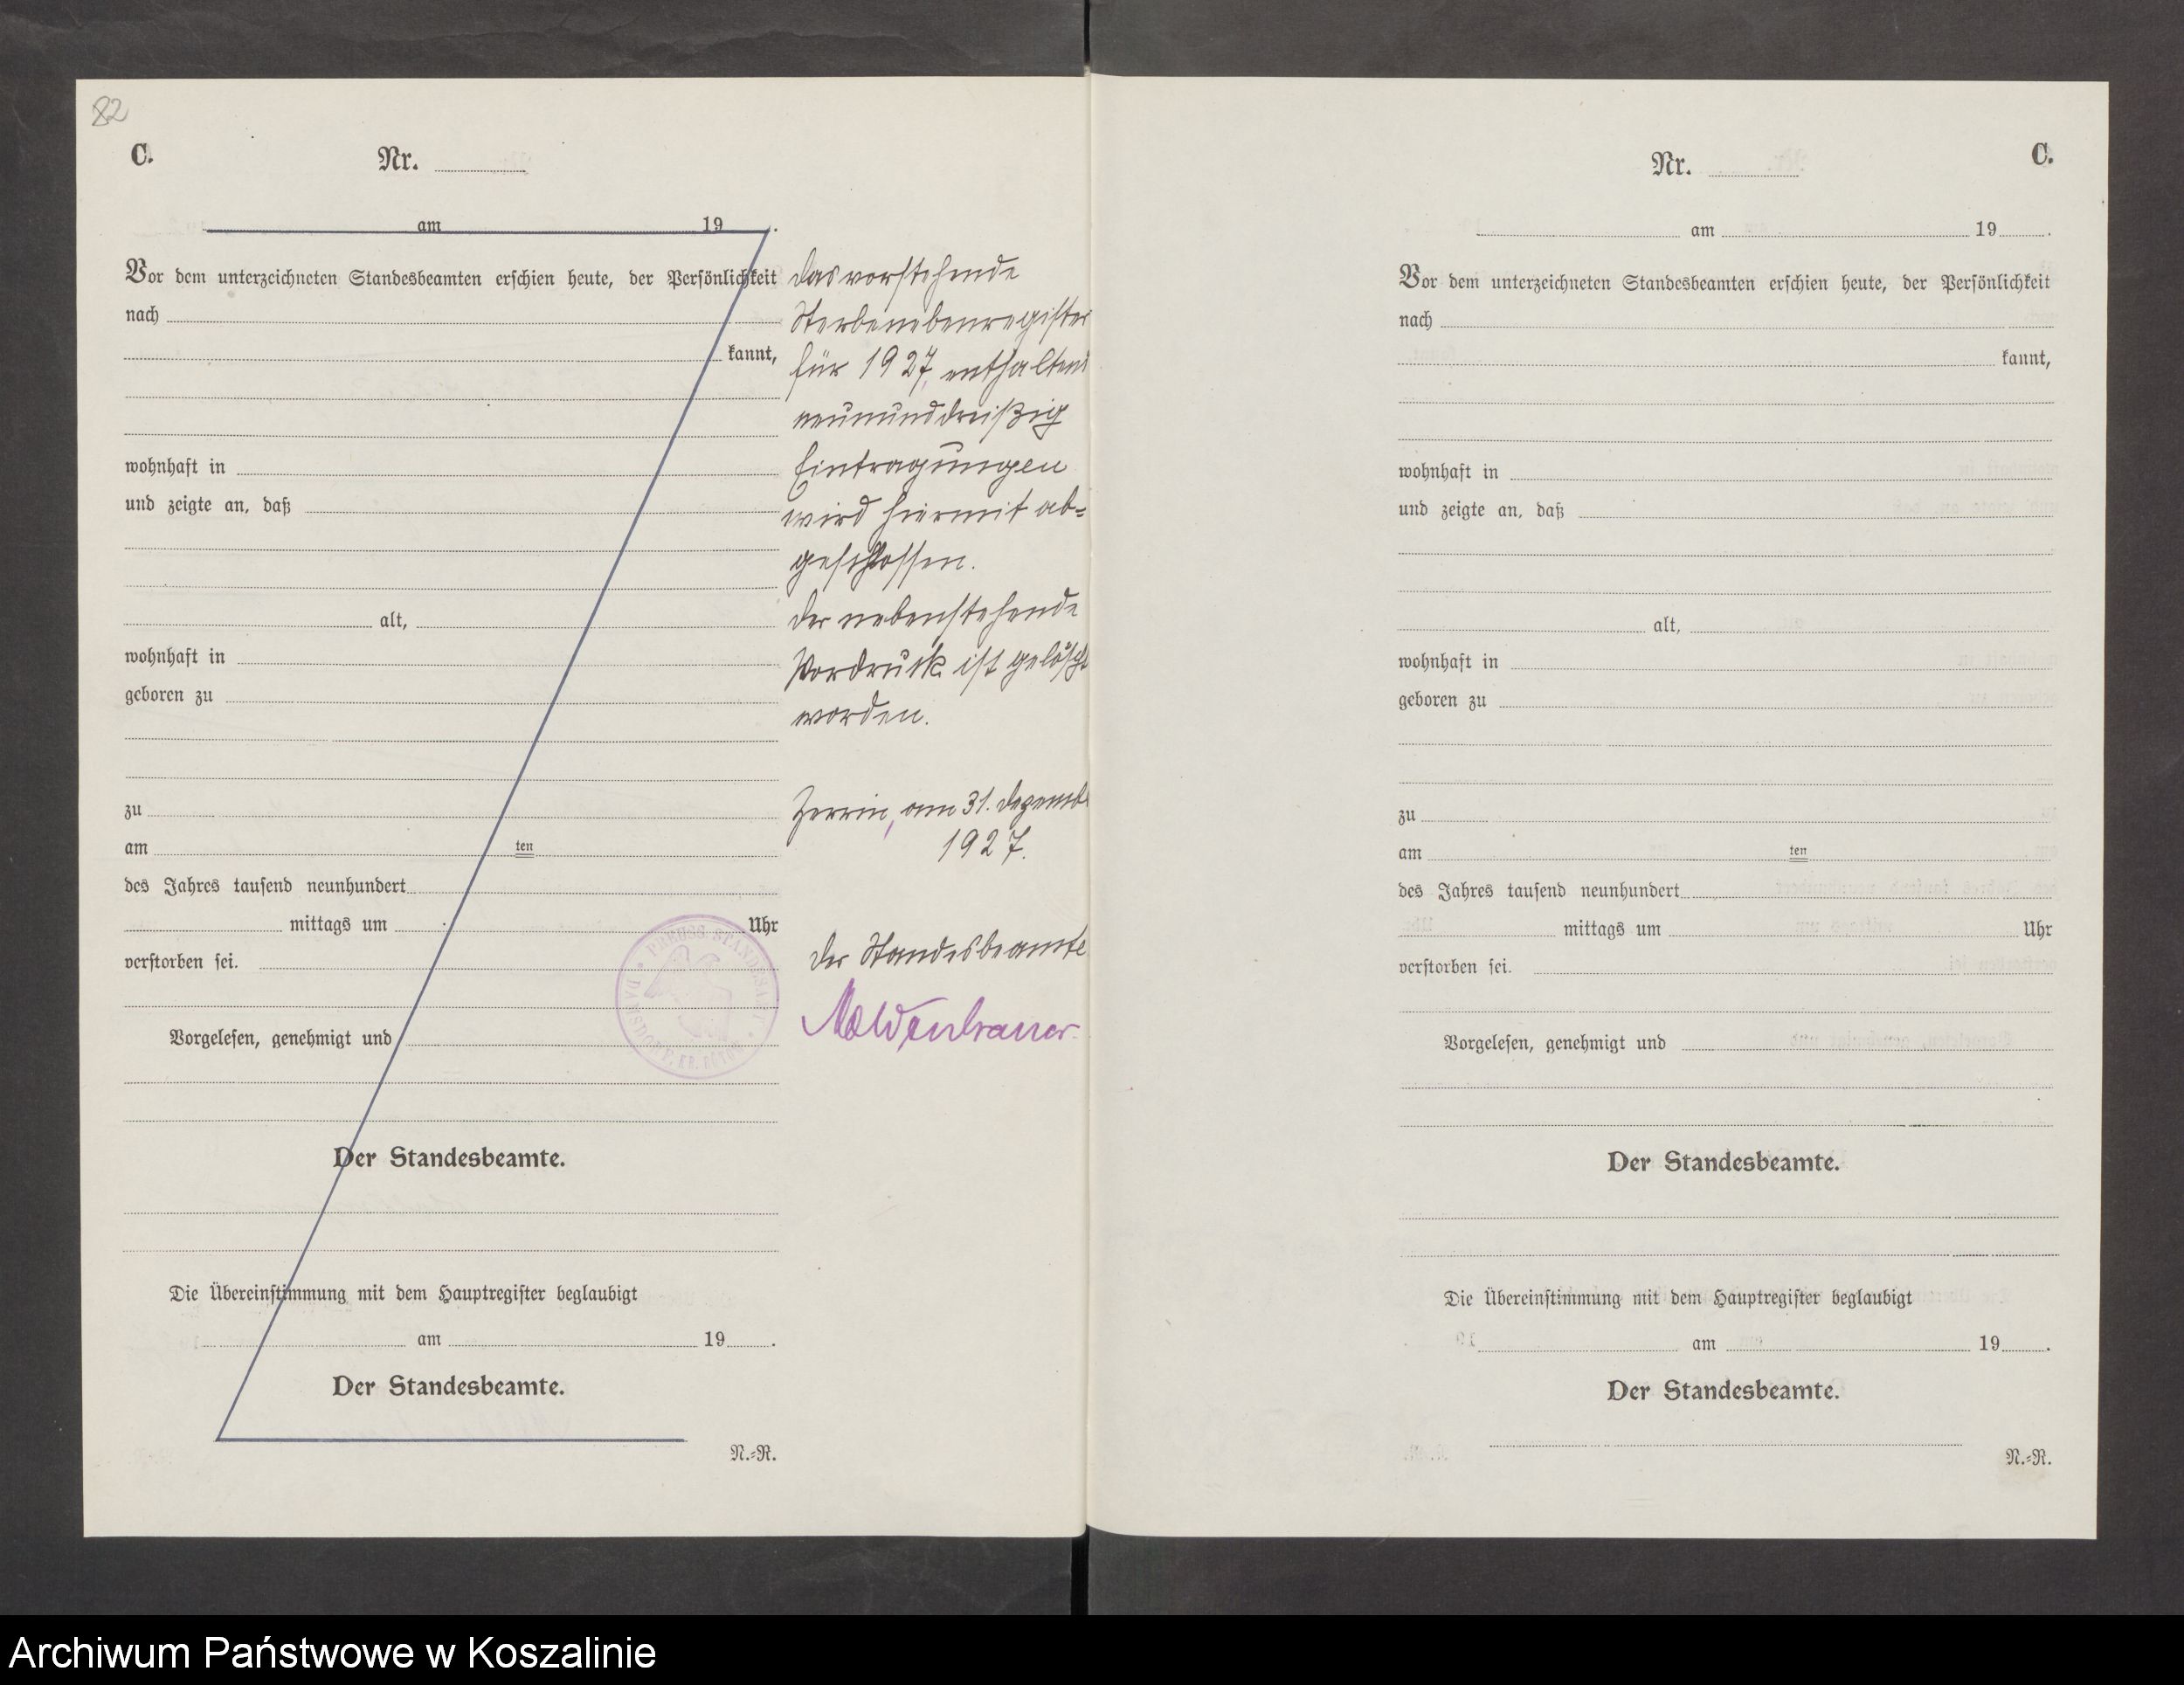 82
C.
Nr.
am 19 .
Vor dem unterzeichneten Standesbeamten erschien heute, der Persönlichkeit
nach
kannt,
wohnhaft in
und zeigte an, daß
alt,
wohnhaft in
geboren zu
zu
am ten
des Jahres tausend neunhundert
mittags um Uhr
verstorben sei.
Vorgelesen, genehmigt und
Der Standesbeamte.
Die Übereinstimmung mit dem Hauptregister beglaubigt
am 19 .
Der Standesbeamte.
N.=R.
Das vorstehende
Sterbenebenregister
für 1927, enthaltend
neununddreißig
Eintragungen
wird hiermit ab=
geschlossen.
Der nebenstehende
Vordruck ist gelöscht
worden.
Zerrin, am 31. Dezemb
1927.
Der Standesbeamte
PREUSS. STANDESAMT
KR. BÜTOW
C.
Nr.
am 19 .
Vor dem unterzeichneten Standesbeamten erschien heute, der Persönlichkeit
nach
kannt,
wohnhaft in
und zeigte an, daß
alt,
wohnhaft in
geboren zu
zu
am ten
des Jahres tausend neunhundert
mittags um Uhr
verstorben sei.
Vorgelesen, genehmigt und
Der Standesbeamte.
Die Übereinstimmung mit dem Hauptregister beglaubigt
am 19 .
Der Standesbeamte.
N.=R.
Archiwum Państwowe w Koszalinie